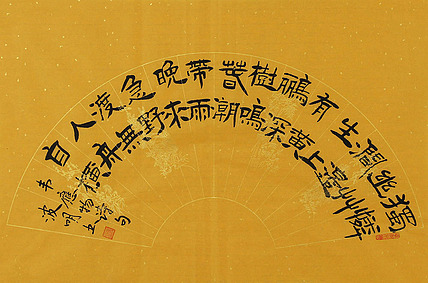 獨憐
幽草
澗邊
生上
有黃
鸝深
樹鳴
春潮
帶雨
晚來
急野
渡無
人舟
自橫
韋應物詩句
波明书